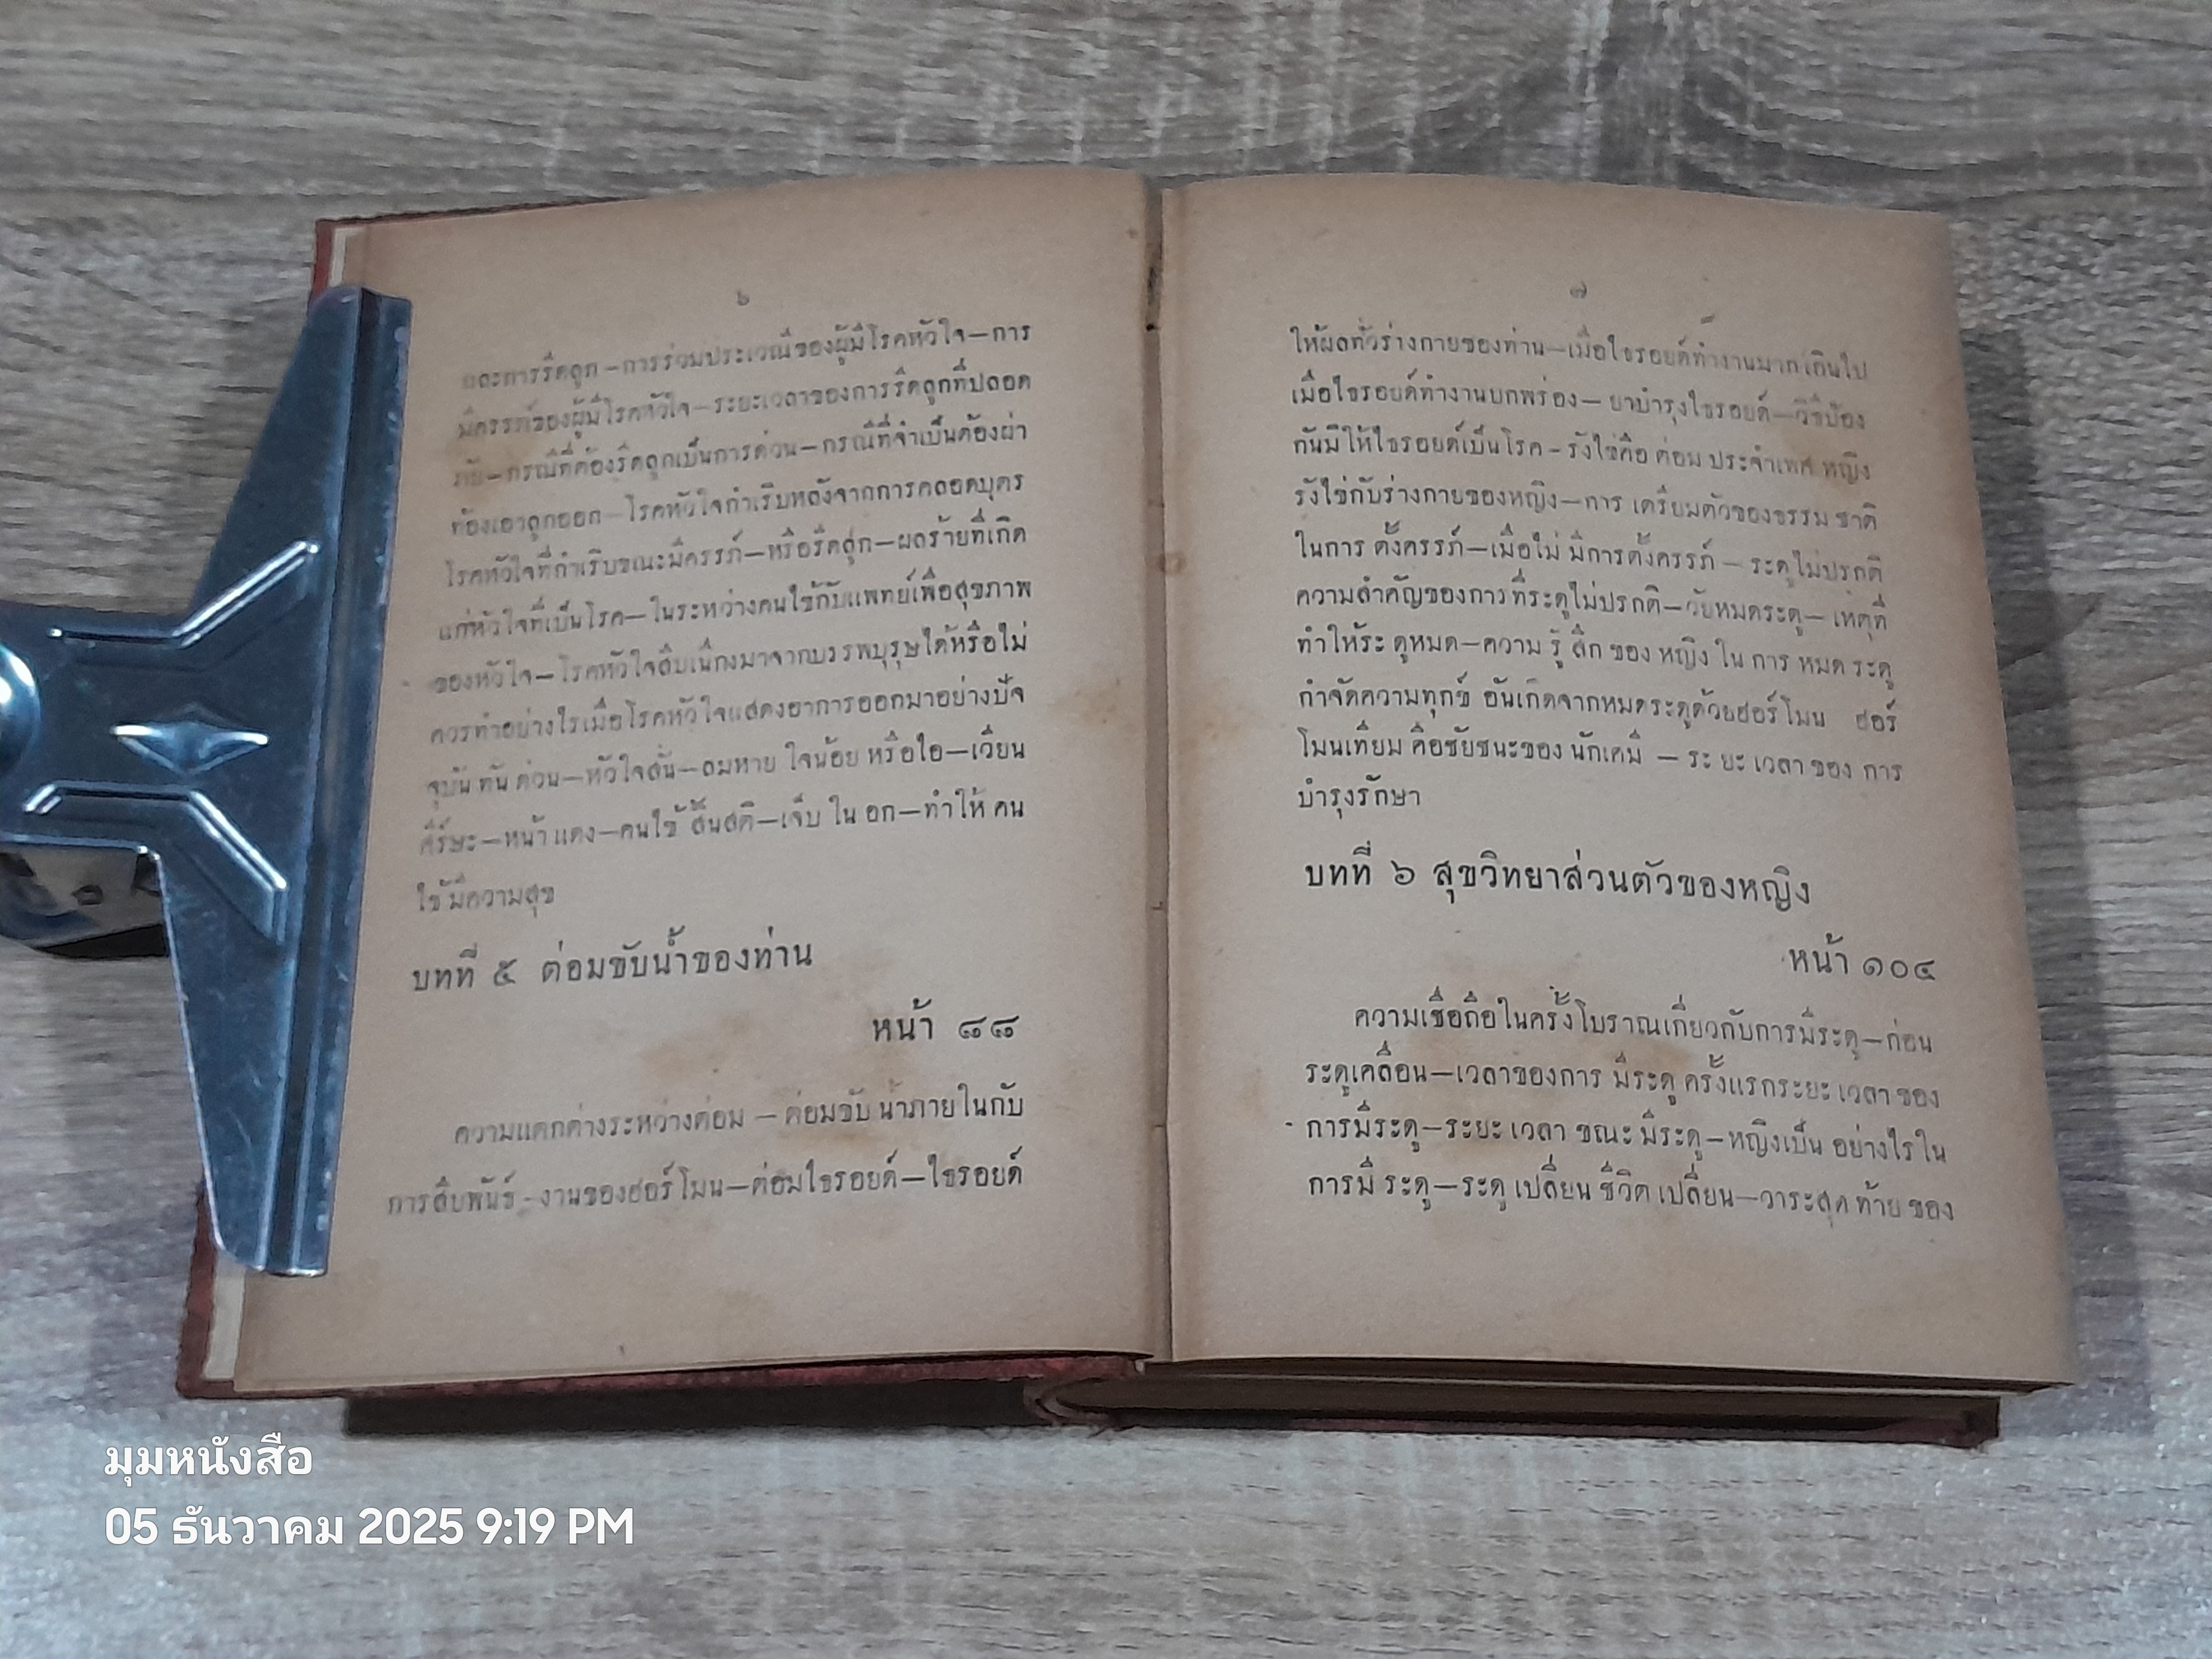 ๖
และการรีดลูก–การร่วมประเวณีของผู้มีโรคหัวใจ–การ
มีครรภ์ของผู้มีโรคหัวใจ–ระยะเวลาของการรีดลูกที่ปลอด
ภัย–กรณีที่ต้องรีดลูกเป็นการด่วน–กรณีที่จำเป็นต้องผ่า
ท้องเอาลูกออก–โรคหัวใจกำเริบหลังจากการคลอดบุตร
โรคหัวใจที่กำเริบขณะมีครรภ์–หรือรีดลูก–ผลร้ายที่เกิด
แก่หัวใจที่เป็นโรค–ในระหว่างคนไข้กับแพทย์เพื่อสุขภาพ
ของหัวใจ–โรคหัวใจสืบเนื่องมาจากบรรพบุรุษได้หรือไม่
ควรทำอย่างไรเมื่อโรคหัวใจแสดงอาการออกมาอย่างปัจ
จุบันทันด่วน–หัวใจสั่น–ลมหายใจน้อย หรือไอ–เวียน
ศีร์ษะ–หน้าแดง–คนไข้สิ้นสติ–เจ็บ ใน อก–ทำให้ คน
ไข้ มีความสุข
บทที่ ๕ ต่อมขับน้ำของท่าน
หน้า ๘๘
ความแตกต่างระหว่างต่อม – ต่อมขับ น้ำภายในกับ
การสืบพันธุ์–งานของฮอร์โมน–ต่อมไธรอยด์–ไธรอยด์
๗
ให้ผลทั่วร่างกายของท่าน–เมื่อไธรอยด์ทำงานมากเกินไป
เมื่อไธรอยด์ทำงานบกพร่อง– ยาบำรุงไธรอยด์–วิธีป้อง
กันมิให้ไธรอยด์เป็นโรค–รังไข่คือ ต่อม ประจำเพศ หญิง
รังไข่กับร่างกายของหญิง–การ เตรียมตัวของธรรม ชาติ
ในการ ตั้งครรภ์–เมื่อไม่ มีการตั้งครรภ์ – ระดูไม่ปรกติ
ความสำคัญของการที่ระดูไม่ปรกติ–วัยหมดระดู– เหตุที่
ทำให้ระ ดูหมด–ความ รู้ สึก ของ หญิง ใน การ หมด ระดู
กำจัดความทุกข์ อันเกิดจากหมดระดูด้วยฮอร์โมน ฮอร์
โมนเทียม คือชัยชนะของ นักเคมี – ระ ยะ เวลา ของ การ
บำรุงรักษา
บทที่ ๖ สุขวิทยาส่วนตัวของหญิง
หน้า ๑๐๔
ความเชื่อถือในครั้งโบราณเกี่ยวกับการมีระดู–ก่อน
ระดูเคลื่อน–เวลาของการ มีระดู ครั้งแรกระยะ เวลา ของ
การมีระดู–ระยะ เวลา ขณะ มีระดู–หญิงเป็น อย่างไรใน
การมี ระดู–ระดู เปลี่ยน ชีวิต เปลี่ยน–วาระสุด ท้าย ของ
มุมหนังสือ
05 ธันวาคม 2025 9:19 PM